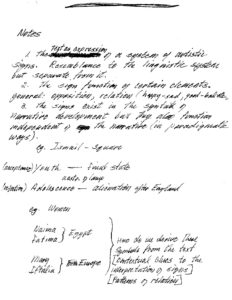 Notes
1. the text as expression of a system of artistic
signs. Resemblance to the linguistic system
but separate from it.
2. the sign function of certain elements.
general: opposition, relation (happy-sad, good-bad etc.
3. the signs exist in the syntax of
narrative development but they also function
independent of the narrative (in paradigmatic
ways).
eg. Ismail - square
Youth — state
Adolescence — alienation after England
eg. Women
Naima
Fatima } Egypt
Mary
} Europe
How do we derive these
symbols from the text
[Contextual clues to the
interpretation of signs]
[Patterns of relation]